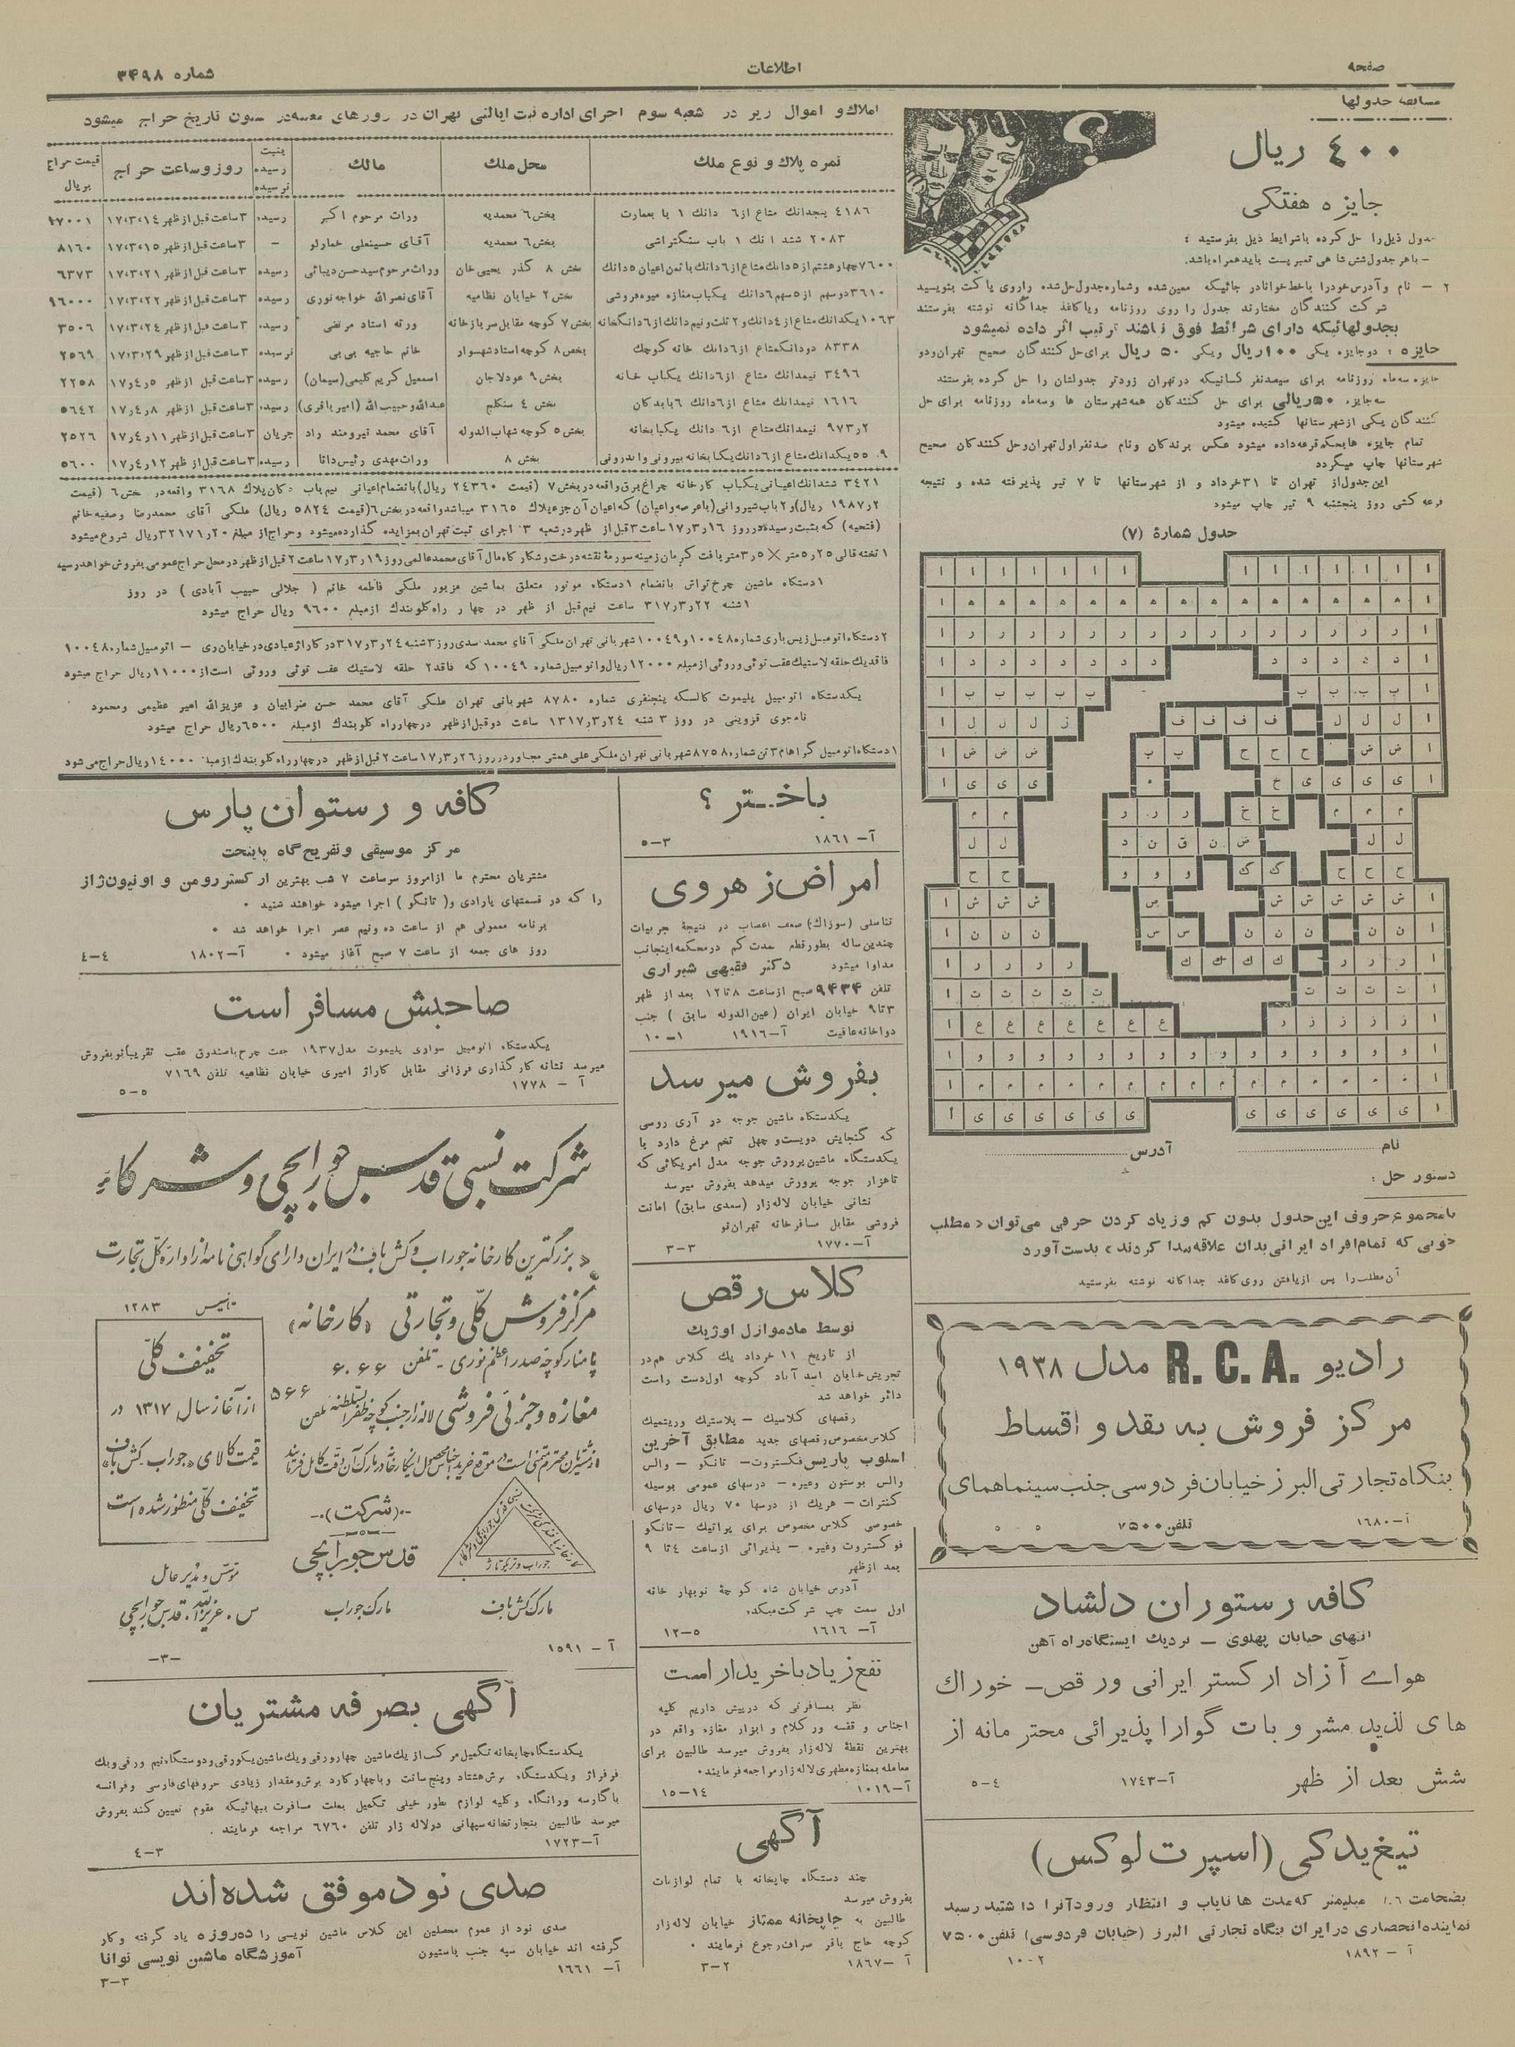 صفحه
اطلاعات
شماره ۳۴۹۸
مسابقه جدولها
۴۰۰ ریال
جایزه هفتگی
جدول ذیل را حل کرده باشرایط ذیل بفرستید :
- باهر جدول شش شاهی تمبر پست باید همراه باشد.
۲ - نام و آدرس خودرا باخط خوانادر جائیکه معین شده و شماره جدول حل شده را روی پاکت بنویسید
شرکت کنندگان مختارند جدول را روی روزنامه ویا کاغذ جداگانه نوشته بفرستند
بجدولهائیکه دارای شرائط فوق نباشند ترتیب اثر داده نمیشود
جایزه : دو جایزه یکی ۱۰۰ ریال ویکی ۵۰ ریال برای حل کنندگان صحیح تهران ودو
جایزه سه ماه روزنامه برای سیصد نفر کسانیکه درتهران زودتر جدولشان را حل کرده بفرستند
سه جایزه ۵۰ ریالی برای حل کنندگان همه شهرستان ها وسه ماه روزنامه برای حل
کنندگان یکی از شهرستانها کشیده میشود
تمام جایزه ها بحکم قرعه داده میشود عکس برندگان ونام صد نفر اول تهران وحل کنندگان صحیح
شهرستانها چاپ میگردد
این جدول از تهران تا ۳۱ خرداد و از شهرستانها تا ۷ تیر پذیرفته شده و نتیجه
قرعه کشی روز پنجشنبه ۹ تیر چاپ میشود
جدول شمارۀ (۷)
نام
آدرس
دستور حل :
بامجموع حروف این جدول بدون کم وزیاد کردن حرفی می توان « مطلب
خوبی که تمام افراد ایرانی بدان علاقه پیدا کردند » بدست آورد
آن مطلب را پس از یافتن روی کاغذ جداگانه نوشته بفرستید
رادیو R.C.A. مدل ۱۹۳۸
مرکز فروش به نقد و اقساط
بنگاه تجارتی البرز خیابان فردوسی جنب سینما همای
آ-۱۶۸۰
تلفن ۷۵۰۰
کافه رستوران دلشاد
انتهای خیابان پهلوی - نزدیک ایستگاه راه آهن
هوای آزاد ارکستر ایرانی ورقص - خوراک
های لذیذ مشروبات گوارا پذیرائی محترمانه از
شش بعد از ظهر
آ-۱۷۴۳
۴-۵
تیغ یدکی (اسپرت لوکس)
بضخامت ۰٫۰۶ میلیمتر که مدت ها نایاب و انتظار ورود آنرا داشتید رسید
نماینده انحصاری در ایران بنگاه تجارتی البرز (خیابان فردوسی) تلفن ۷۵۰۰
آ - ۱۸۹۲
۲-۱۰
املاک و اموال زیر در شعبه سوم اجرای اداره ثبت ایالتی تهران در روزهای معینه در ستون تاریخ حراج میشود
نمره پلاک و نوع ملک | محل ملک | مالک | بثبت رسیده نرسیده | روز و ساعت حراج | قیمت حراج بریال
۴۱۸۶ پنجدانک مشاع از ۶ دانک ۱ با بعمارت | بخش ۶ محمدیه | وراث مرحوم اکبر | رسیده | ۳ ساعت قبل از ظهر ۱۷،۳،۱۴ | ۹۷۰۰۱
۲۰۸۳ ششدانک ۱ باب سنگتراشی | بخش ۶ محمدیه | آقای حسینعلی خمارلو | - | ۳ ساعت قبل از ظهر ۱۷،۳،۱۵ | ۸۱۶۰
۷۶۰۰ چهار هشتم از ۵ دانک مشاع از ۶ دانک با ثمن اعیان ۵ دانک | بخش ۸ گذر یحیی خان | وراث مرحوم سید حسن دیبائی | رسیده | ۳ ساعت قبل از ظهر ۱۷،۳،۲۱ | ۶۳۷۳
۳۶۱۰ دو سهم از ۵ سهم ۶ دانک یکباب مغازه میوه فروشی | بخش ۲ خیابان نظامیه | آقای نصرالله خواجه نوری | رسیده | ۳ ساعت قبل از ظهر ۱۷،۳،۲۲ | ۹۶۰۰۰
۱۰۶۳ یکدانک مشاع از ۴ دانک و ۲ ثلث و نیم دانک از ۶ دانگ خانه | بخش ۷ کوچه مقابل سربازخانه | ورثه استاد مرتضی | رسیده | ۳ ساعت قبل از ظهر ۱۷،۳،۲۴ | ۳۵۰۶
۸۳۳۸ دو دانک مشاع از ۶ دانک خانه کوچک | بخش ۸ کوچه استاد شهسوار | خانم حاجیه بی بی | نرسیده | ۳ ساعت قبل از ظهر ۱۷،۳،۲۹ | ۲۵۶۹
۳۴۹۶ نیمدانک مشاع از ۶ دانک یکباب خانه | بخش ۹ عودلاجان | اسمعیل کریم کلیمی (سیمان) | رسیده | ۳ ساعت قبل از ظهر ۱۷٫۴٫۵ | ۲۲۵۸
۱۶۱۶ نیمدانک مشاع از ۶ دانک ۶ باب دکان | بخش ۴ سنگلج | عبدالله وحبیب الله (امیر باقری) | رسیده | ۳ ساعت قبل از ظهر ۱۷٫۴٫۸ | ۵۶۴۲
۲٫۹۷۳ نیمدانک مشاع از ۶ دانک یکبابخانه | بخش ۵ کوچه شهاب الدوله | آقای محمد نیرومند راد | جریان | ۳ ساعت قبل از ظهر ۱۷٫۴٫۱۱ | ۲۵۲۶
۵۵۰۹ یکدانک مشاع از ۶ دانک یکبابخانه بیرونی واندرونی | بخش ۸ | وراث مهدی رئیس دانا | رسیده | ۳ ساعت قبل از ظهر ۱۷٫۴٫۱۲ | ۵۶۰۰
۳۴۲۱ ششدانک اعیانی یکباب کارخانه چراغ برق واقعه در بخش ۷ (قیمت ۲۴۳۶۰ ریال) بانضمام اعیانی نیم باب دکان پلاک ۳۱۶۸ واقعه در بخش ۶ (قیمت
۱۹۸۷٫۲ ریال) و ۲ باب شیروانی (باعرصه واعیان) که اعیان آن جزء پلاک ۳۱۶۵ میباشد واقعه در بخش ۶ (قیمت ۵۸۲۴ ریال) ملکی آقای محمدرضا وصفیه خانم
(فتحیه) که بثبت رسیده در روز ۱۷٫۳٫۱۶ ساعت ۳ قبل از ظهر در شعبه ۳ اجرای ثبت تهران بمزایده گذارده میشود وحراج از مبلغ ۳۲۱۷۱٫۲۰ ریال شروع میشود
۱ تخته قالی ۵٫۲۵ متر × ۳٫۵ متر بافت کرمان زمینه سورمه نقشه درخت وشکارگاه مال آقای محمد عالمی روز ۱۷٫۳٫۱۹ ساعت ۲ قبل از ظهر در محل حراج عمومی بفروش خواهد رسید
۱ دستگاه ماشین چرخ تراش بانضمام ۱ دستگاه موتور متعلق بماشین مزبور ملکی فاطمه خانم ( جلالی حبیب آبادی ) در روز
۱ شنبه ۳۱۷٫۳٫۲۲ ساعت نیم قبل از ظهر در چهار راه کلوبندک از مبلغ ۹۶۰۰ ریال حراج میشود
۲ دستگاه اتومبیل زیس باری شماره ۱۰۰۴۸ و ۱۰۰۴۹ شهربانی تهران ملکی آقای محمد سدی روز ۳ شنبه ۳۱۷٫۳٫۲۴ در کاراژ عبادی در خیابان ری - اتومبیل شماره ۱۰۰۴۸
فاقد یک حلقه لاستیک عقب توئی وروئی از مبلغ ۱۲۰۰۰ ریال واتومبیل شماره ۱۰۰۴۹ که فاقد ۲ حلقه لاستیک عقب توئی وروئی است از ۱۱۰۰۰ ریال حراج میشود
یکدستگاه اتومبیل پلیموت کالسکه پنجنفری شماره ۸۷۸۰ شهربانی تهران ملکی آقای محمد حسن ضرابیان و عزیزالله امیر عظیمی ومحمود
نامجوی قزوینی در روز ۳ شنبه ۱۳۱۷٫۳٫۲۴ ساعت دو قبل از ظهر در چهارراه کلوبندک از مبلغ ۶۵۰۰ ریال حراج میشود
۱ دستگاه اتومبیل گراهام ۳ تن شماره ۸۷۵۸ شهربانی تهران ملکی علی همتی مجاور در روز ۱۷٫۳٫۲۶ ساعت ۲ قبل از ظهر در چهارراه کلوبندک از مبلغ ۱۴۰۰۰ ریال حراج می شود
باختر ؟
آ-۱۸۶۱
۳-۵
امراض زهروی
تناسلی (سوزاک) ضعف اعصاب در نتیجۀ تجربیات
چندین ساله بطور قطع بمدت کم در محکمه اینجانب
مداوا میشود دکتر فقیهی شیرازی
تلفن ۹۴۳۴ صبح از ساعت ۸ تا ۱۲ بعد از ظهر
۳ تا ۹ خیابان ایران (عین الدوله سابق ) جنب
دواخانه عاقبت آ-۱۹۱۶ ۱-۱۰
بفروش میرسد
یکدستگاه ماشین جوجه در آری روسی
که گنجایش دویست و چهل تخم مرغ دارد با
یکدستگاه ماشین پرورش جوجه مدل امریکائی که
تا هزار جوجه پرورش میدهد بفروش میرسد
نشانی خیابان لاله زار (سعدی سابق) امانت
فروشی مقابل مسافرخانه تهران نو
آ-۱۷۷۰
۳-۳
کلاس رقص
توسط مادموازل اوژیک
از تاریخ ۱۱ خرداد یک کلاس هم در
تجریش خیابان اسدآباد کوچه اول دست راست
دائر خواهد شد
رقصهای کلاسیک - پلاستیک وریتمیک
کلاس مخصوص رقصهای جدید مطابق آخرین
اسلوب پاریس فکستروت - تانکو - والس
والس بوستون وغیره - درسهای عمومی بوسیله
کنترات - هریک از درسها ۷۰ ریال درسهای
خصوصی کلاس مخصوص برای پراتیک - تانکو
فوکستروت وغیره - پذیرائی از ساعت ۴ تا ۹
بعد از ظهر
آدرس خیابان شاه کوچۀ نوبهار خانه
اول سمت چپ شرکت میکده
آ-۱۶۱۶
۵-۱۲
نفع زیاد باخریدار است
نظر بمسافرتی که درپیش داریم کلیه
اجناس و قفسه ورکلام و ابزار مغازه واقع در
بهترین نقطۀ لاله زار بفروش میرسد طالبین برای
معامله بمغازه مطهری لاله زار مراجعه فرمایند .
آ-۱۰۱۹
۱۴-۱۵
آگهی
چند دستگاه چاپخانه با تمام لوازمات
بفروش میرسد
طالبین به چاپخانه ممتاز خیابان لاله زار
کوچه حاج باقر صراف رجوع فرمایند .
آ-۱۸۶۷
۲-۳
کافه و رستوران پارس
مرکز موسیقی و تفریح گاه پایتخت
مشتریان محترم ما از امروز سر ساعت ۷ شب بهترین ارکستر رومن و اونیون ژاز
را که در قسمتهای پارادی و( تانکو ) اجرا میشود خواهند شنید .
برنامه معمولی هم از ساعت ده ونیم عصر اجرا خواهد شد .
روز های جمعه از ساعت ۷ صبح آغاز میشود . آ-۱۸۰۲ ۴-۴
صاحبش مسافر است
یکدستگاه اتومبیل سواری پلیموت مدل ۱۹۳۷ جفت چرخ باصندوق عقب تقریبا نو بفروش
میرسد نشانه کارگذاری فرزانی مقابل کاراژ امیری خیابان نظامیه تلفن ۷۱۶۹
آ - ۱۷۷۸
۵-۵
شرکت نسبی قدس جورابچی و شرکاء
« بزرگترین کارخانه جوراب و کش باف در ایران دارای گواهی نامه از اداره کل تجارت »
مرکز فروش کلی و تجارتی «کارخانه»
تاسیس ۱۲۸۳
پامنار کوچه صدر اعظم نوری - تلفن ۶۰۶۶
مغازه و جزئی فروشی لاله زار جنب کوچه ظفرالسلطنه تلفن ۵۶۶
از مشتریان محترم متمنی است در موقع خرید جنس محصول این کارخانه در مارک آن دقت کامل فرمایند
تخفیف کلی
از آغاز سال ۱۳۱۷ در
قیمت کالای «جوراب کش باف»
تخفیف کلی منظور شده است
-(شرکت)-
قدس جورابچی
جوراب و تریکو تاژ
مارک کش باف
مارک جوراب
موسس و مدیر عامل
س . عزیزالله قدس جورابچی
آ - ۱۵۹۱
-۳-
آگهی بصرفه مشتریان
یکدستگاه چاپخانه تکمیل مرکب از یک ماشین چهار ورقی و یک ماشین یکورقی و دو دستگاه نیم ورقی و یک
فرفراژ و یکدستگاه برش هشتاد وپنج سانت و با چهار کارد برش و مقدار زیادی حروفهای فارسی وفرانسه
با گارسه ورانگا، وکلیه لوازم بطور خیلی تکمیل بعلت مسافرت ببهائیکه مقوم تعیین کند بفروش
میرسد طالبین بتجارتخانه سپهانی در لاله زار تلفن ۶۷۶۰ مراجعه فرمایند .
آ-۱۷۲۳
۳-۴
صدی نود موفق شده اند
صدی نود از عموم محصلین این کلاس ماشین نویسی را ده روزه یاد گرفته وکار
گرفته اند خیابان سپه جنب پاستیون آموزشگاه ماشین نویسی توانا
آ-۱۶۶۱
۳-۳